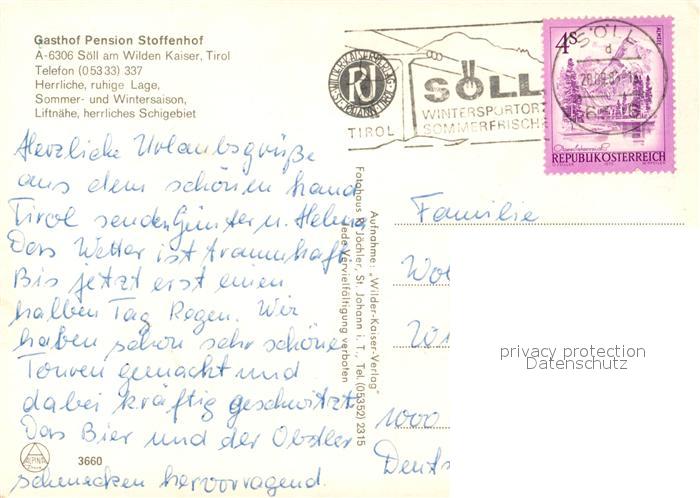 Gasthof Pension Stoffenhof
A-6306 Söll am Wilden Kaiser, Tirol
Telefon (05333) 337
Herrliche, ruhige Lage,
Sommer- und Wintersaison,
Liftnähe, herrliches Schigebiet
Herzliche Urlaubsgrüße
aus dem schönen Land
Tirol senden Günter u. Helma
Das Wetter ist traumhaft
Bis jetzt erst einen
halben Tag Regen. Wir
haben schon sehr schöne
Touren gemacht und
dabei kräftig geschwitzt
Das Bier und der Obstler
schmecken hervorragend.
ALPINA
3660
Aufnahme: „Wilder-Kaiser-Verlag"
Fotohaus R. Jöchler, St. Johann i. T., Tel. (05352) 2315
Jede Vervielfältigung verboten
TIROL
SÖLL
WINTERSPORTORT
SOMMERFRISCH
SÖLL
4S
REPUBLIK ÖSTERREICH
Familie
1000
Deuts
privacy protection
Datenschutz